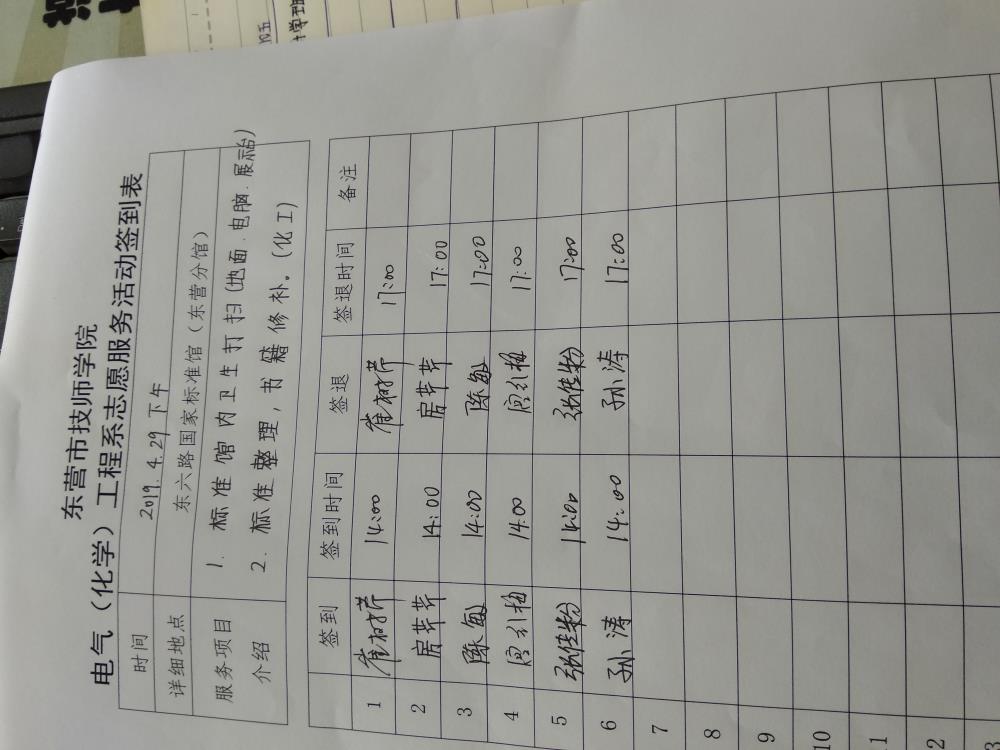 东营市技师学院
电气（化学）工程系志愿服务活动签到表
时间 2019.4.29下午
详细地点 东六路国家标准馆（东营分馆）
服务项目介绍 1. 标准馆内卫生打扫(地面.电脑.展示台)
2. 标准整理，书籍修补。(化工)
签到 签到时间 签退 签退时间 备注
1 14:00 17:00
2 房芹芹 14:00 房芹芹 17:00
3 陈敏 14:00 陈敏 17:00
4 14:00 17:00
5 14:00 17:00
6 孙涛 14:00 孙涛 17:00
7
8
9
10
11